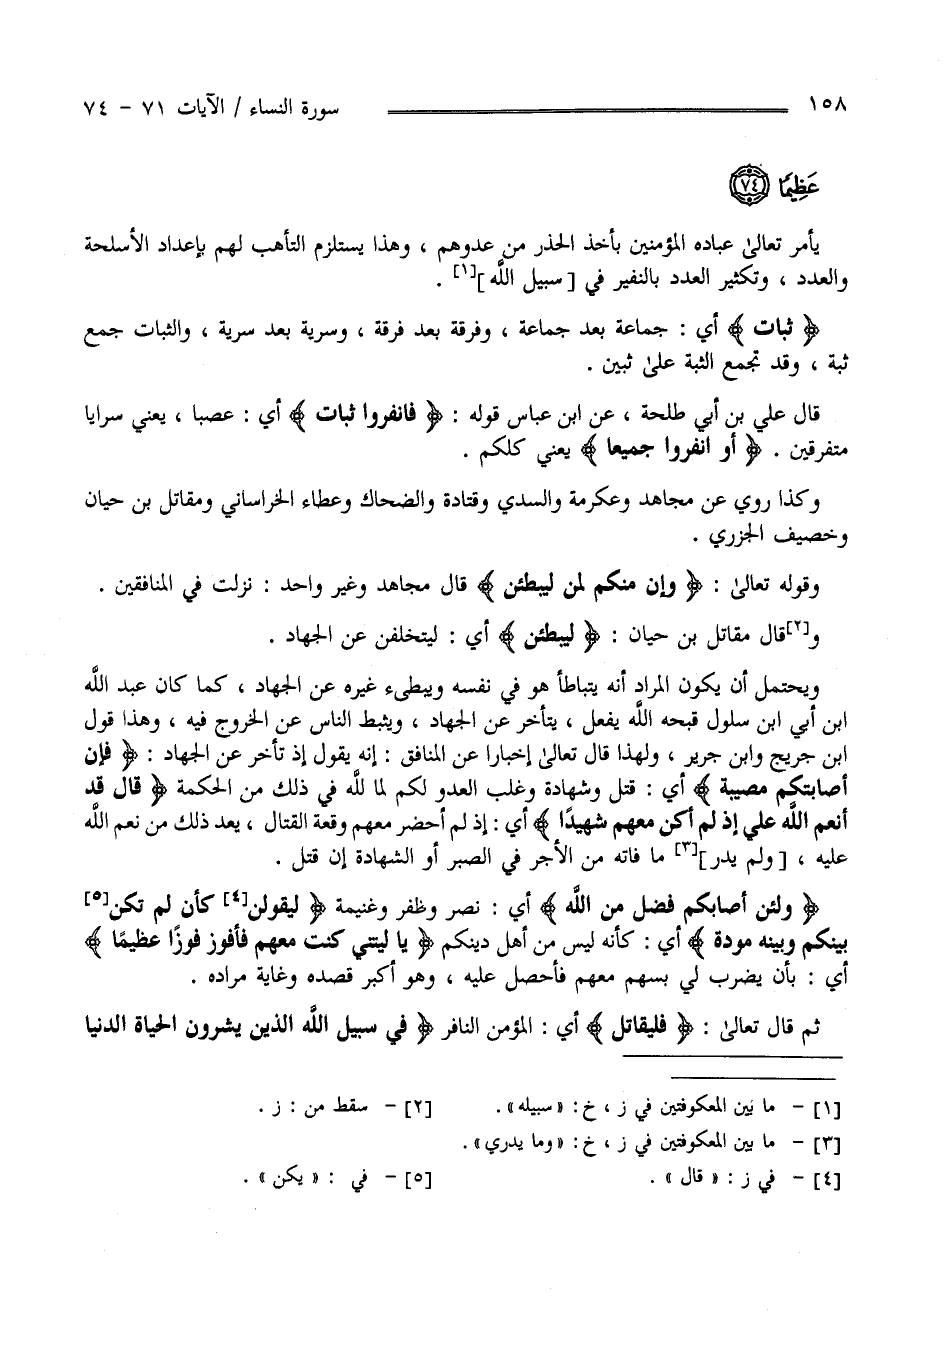 ١٥٨ سورة النساء / الآيات ٧١ - ٧٤
عَظِيمًا ٧٤
يأمر تعالىٰ عباده المؤمنين بأخذ الحذر من عدوهم ، وهذا يستلزم التأهب لهم بإعداد الأسلحة
والعدد ، وتكثير العدد بالنفير في [ سبيل اللَّه ][١] .
﴿ ثبات ﴾ أي : جماعة بعد جماعة ، وفرقة بعد فرقة ، وسرية بعد سرية ، والثبات جمع
ثبة ، وقد تجمع الثبة علىٰ ثبين .
قال علي بن أبي طلحة ، عن ابن عباس قوله : ﴿ فانفروا ثبات ﴾ أي : عصبا ، يعني سرايا
متفرقين . ﴿ أو انفروا جميعا ﴾ يعني كلكم .
وكذا روي عن مجاهد وعكرمة والسدي وقتادة والضحاك وعطاء الخراساني ومقاتل بن حيان
وخصيف الجزري .
وقوله تعالىٰ : ﴿ وإن منكم لمن ليبطئن ﴾ قال مجاهد وغير واحد : نزلت في المنافقين .
و[٢]قال مقاتل بن حيان : ﴿ ليبطئن ﴾ أي : ليتخلفن عن الجهاد .
ويحتمل أن يكون المراد أنه يتباطأ هو في نفسه ويبطىء غيره عن الجهاد ، كما كان عبد اللَّه
ابن أبي ابن سلول قبحه اللَّه يفعل ، يتأخر عن الجهاد ، ويثبط الناس عن الخروج فيه ، وهذا قول
ابن جريج وابن جرير ، ولهذا قال تعالىٰ إخبارا عن المنافق : إنه يقول إذ تأخر عن الجهاد : ﴿ فإن
أصابتكم مصيبة ﴾ أي : قتل وشهادة وغلب العدو لكم لما للَّه في ذلك من الحكمة ﴿ قال قد
أنعم اللَّه علي إذ لم أكن معهم شهيدًا ﴾ أي : إذ لم أحضر معهم وقعة القتال ، يعد ذلك من نعم اللَّه
عليه ، [ ولم يدر ][٣] ما فاته من الأجر في الصبر أو الشهادة إن قتل .
﴿ ولئن أصابكم فضل من اللَّه ﴾ أي : نصر وظفر وغنيمة ﴿ ليقولن[٤] كأن لم تكن[٥]
بينكم وبينه مودة ﴾ أي : كأنه ليس من أهل دينكم ﴿ يا ليتني كنت معهم فأفوز فوزًا عظيمًا ﴾
أي : بأن يضرب لي بسهم معهم فأحصل عليه ، وهو أكبر قصده وغاية مراده .
ثم قال تعالىٰ : ﴿ فليقاتل ﴾ أي : المؤمن النافر ﴿ في سبيل اللَّه الذين يشرون الحياة الدنيا
[١] - ما بين المعكوفتين في ز ، خ : « سبيله » . [٢] - سقط من : ز .
[٣] - ما بين المعكوفتين في ز ، خ : « وما يدري » .
[٤] - في ز : « قال » . [٥] - في : « يكن » .